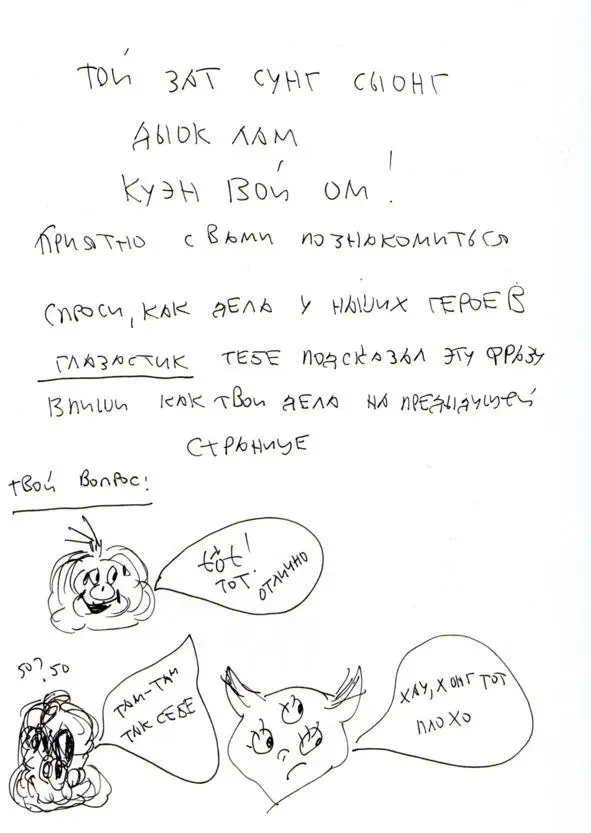 ТОЙ ЗАТ СУНГ СЫОНГ
ДЫОК ЛАМ
КУЭН ВОЙ ОМ!
ПРИЯТНО С ВАМИ ПОЗНАКОМИТЬСЯ
СПРОСИ, КАК ДЕЛА У НАШИХ ГЕРОЕВ
ГЛАЗАСТИК ТЕБЕ ПОДСКАЗАЛ ЭТУ ФРАЗУ
ВПИШИ КАК ТВОИ ДЕЛА НА ПРЕДЫДУЩЕЙ
СТРАНИЦЕ
ТВОЙ ВОПРОС:
tốt!
ТОТ!
ОТЛИЧНО
50?.50
ТАМ-ТАМ
ТАК СЕБЕ
ХАУ, ХОНГ ТОТ
ПЛОХО